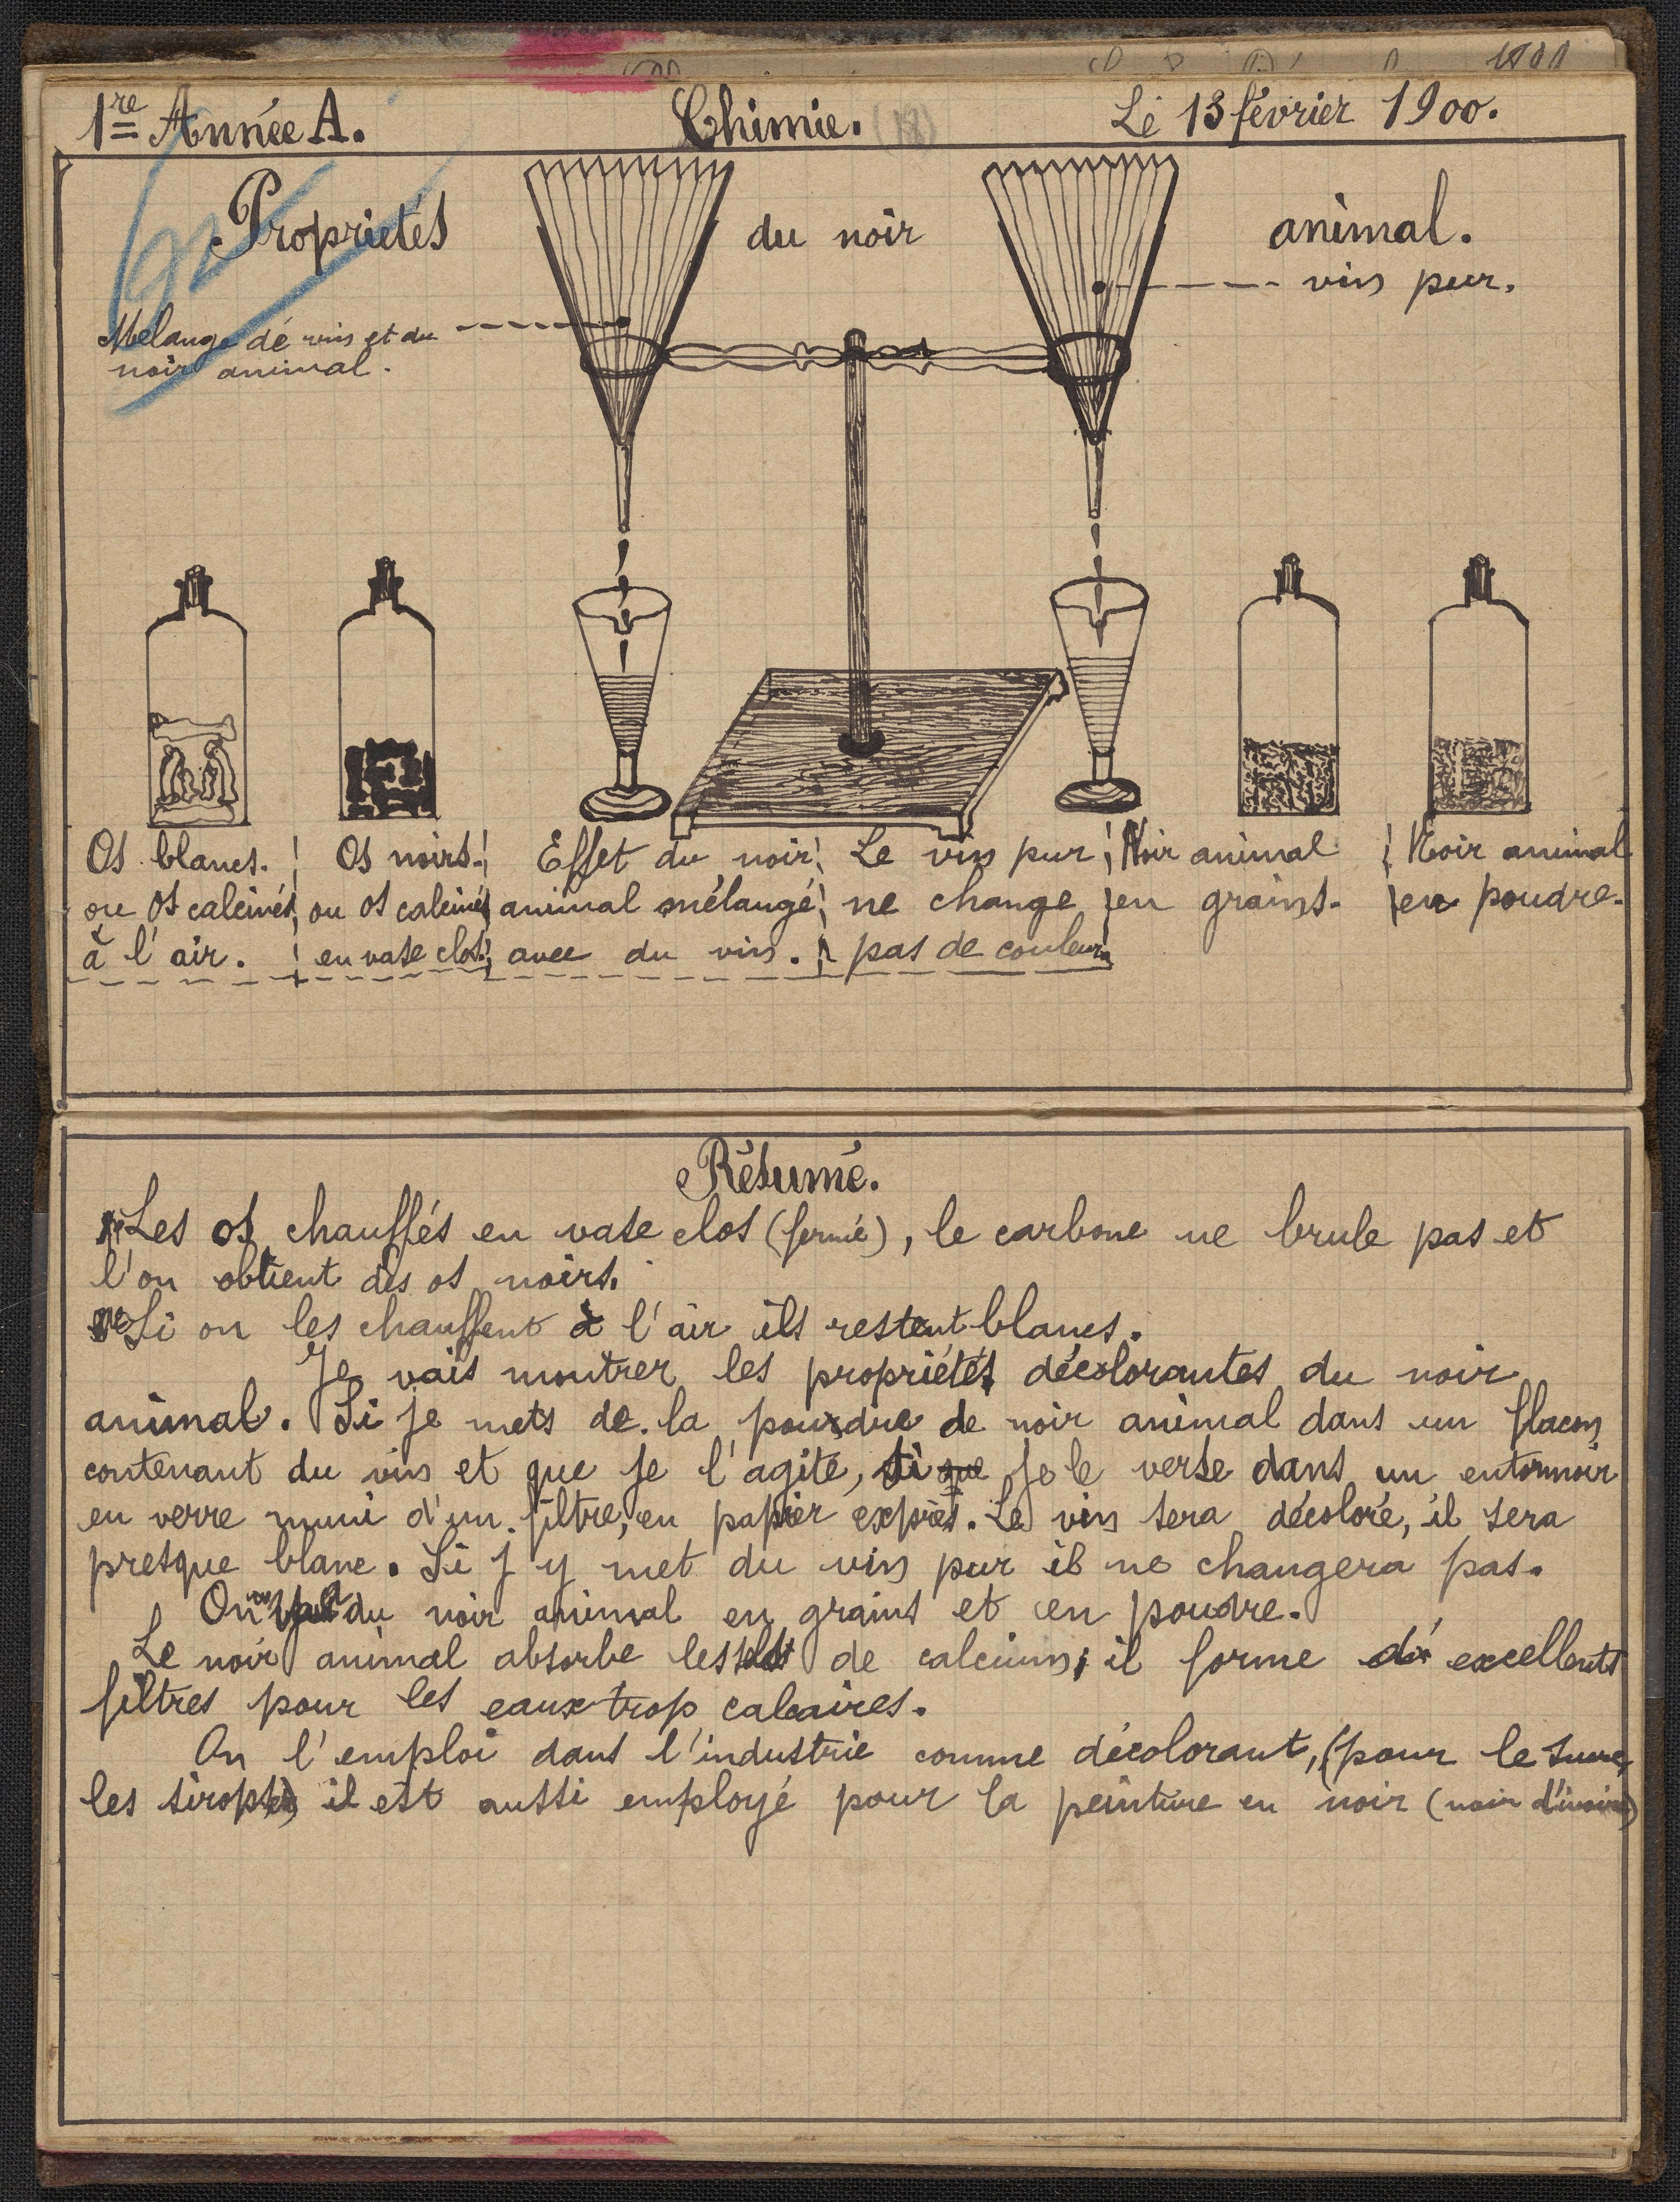 1re Année A. Chimie. (18) Le 13 février 1900.
Propriétés du noir animal.
vin pur.
Mélange de vin et du
noir animal.
Os blancs. Os noirs. Effet du noir Le vin pur Noir animal Noir animal
ou os calcinés ou os calcinés animal mélangé ne change en grains. en poudre.
à l'air. en vase clos. avec du vin. pas de couleur
Résumé.
Les os chauffés en vase clos (fermé), le carbone ne brule pas et
l'on obtient des os noirs.
Si on les chauffent à l'air ils restent blancs.
Je vais montrer les propriétés décolorantes du noir
animal. Si je mets de la poudre de noir animal dans un flacon
contenant du vin et que je l'agite, si que je le verse dans un entonnoir
en verre muni d'un filtre, en papier exprès. Le vin sera décoloré, il sera
presque blanc. Si j'y met du vin pur il ne changera pas.
On du noir animal en grains et en poudre.
Le noir animal absorbe les sels de calcium; il forme d' excellents
filtres pour les eaux trop calcaires.
On l'emploi dans l'industrie comme décolorant, (pour le sucre,
les sirops) il est aussi employé pour la peinture en noir (noir d'ivoire)